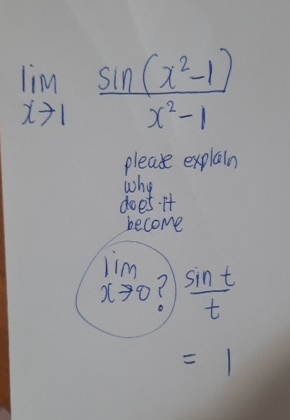 lim x→1 sin(x²-1) / x²-1
please explain
why
does it
become
lim x→0 ? sin t / t
= 1